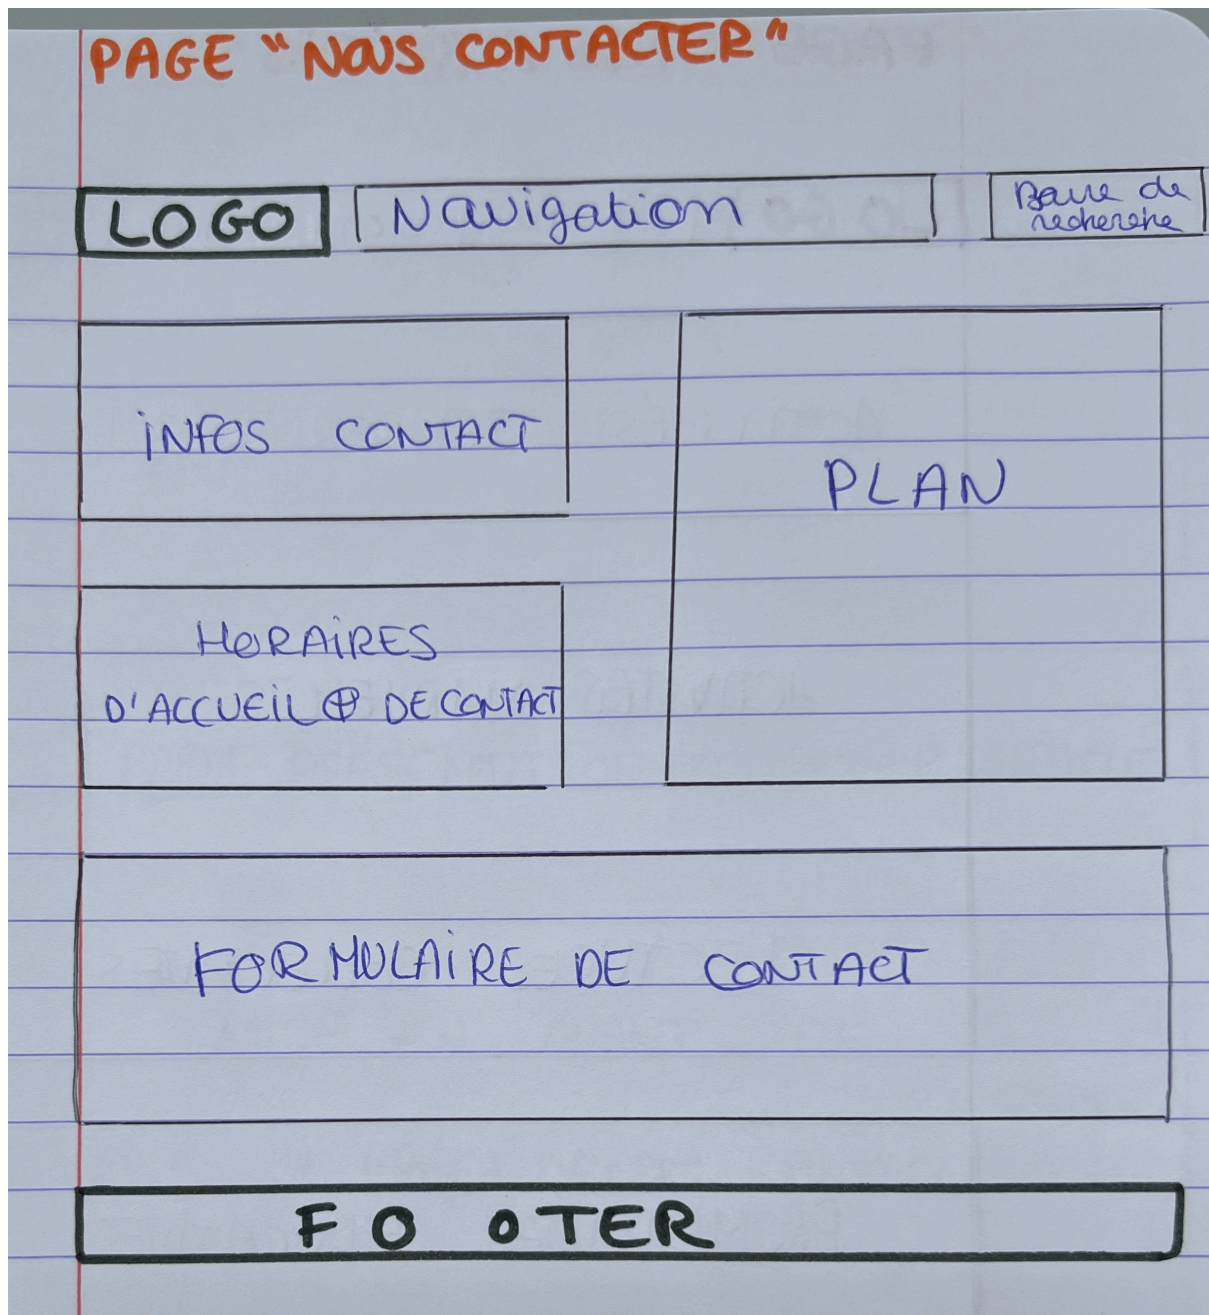 PAGE "NOUS CONTACTER"
LOGO
Navigation
Barre de
recherche
iNFOS CONTACT
PLAN
HORAiRES
D'ACCUEiL ⊕ DE CONTACT
FORMULAiRE DE CONTACT
FOOTER